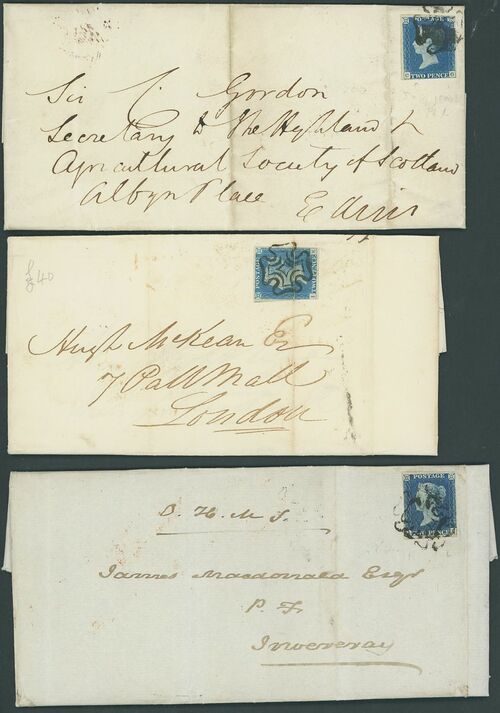 POSTAGE
TWO PENCE
Sir C. Gordon
Secretary to the Highland &
Agricultural Society of Scotland
Albyn Place
Edinr
£40
POSTAGE
Hugh McKean Esr
7 Pall Mall
London
POSTAGE
TWO PENCE
O. H. M. S.
James Macdonald Esqr
P. F.
Inverary